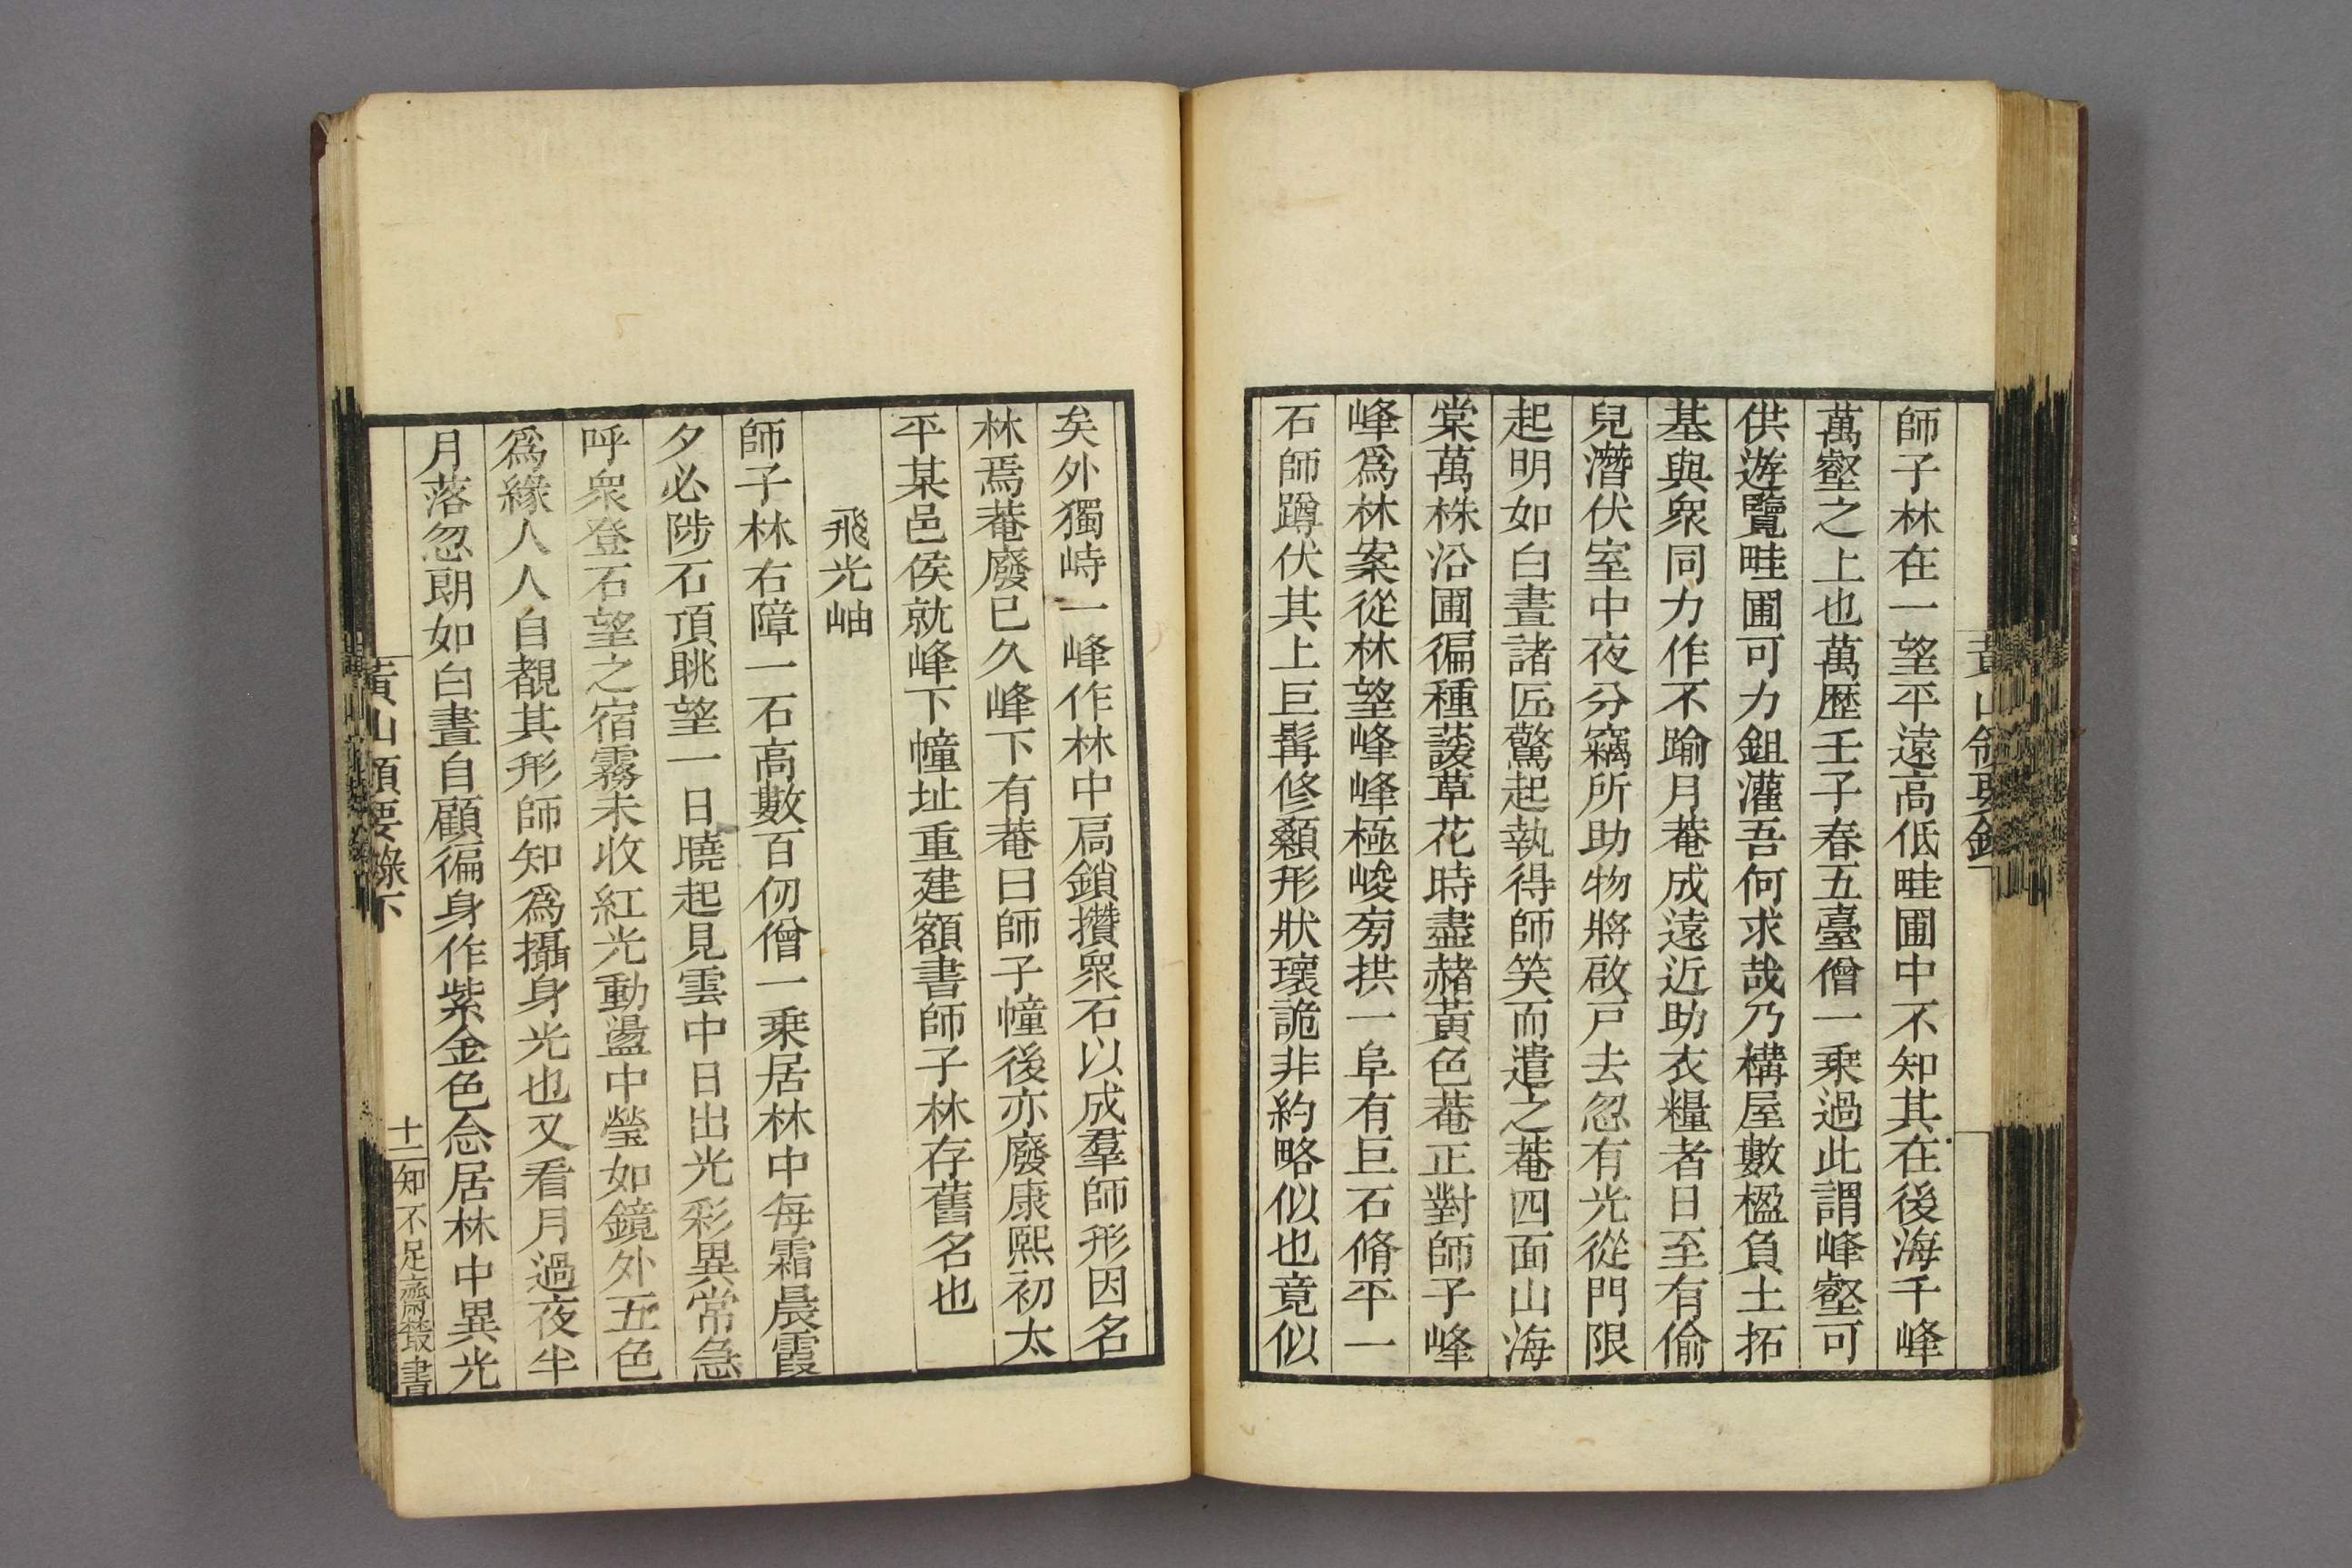 師子林在一望平遠高低畦圃中不知其在後海千峰
萬壑之上也萬歷壬子春五臺僧一乘過此謂峰壑可
供遊覽畦圃可力鉏灌吾何求哉乃構屋數楹負土拓
基與眾同力作不踰月菴成遠近助衣糧者日至有偷
兒潛伏室中夜分竊所助物將啟戶去忽有光從門限
起明如白晝諸匠驚起執得師笑而遣之菴四面山海
棠萬株沿圃徧種薐草花時盡赭黃色菴正對師子峰
峰爲林案從林望峰峰極峻旁拱一阜有巨石脩平一
石師蹲伏其上巨髯修纇形狀瓌詭非約略似也竟似
矣外獨峙一峰作林中扃鎖攢眾石以成羣師形因名
林焉菴廢已久峰下有菴曰師子幢後亦廢康熙初太
平某邑侯就峰下幢址重建額書師子林存舊名也
飛光岫
師子林右障一石高數百仞僧一乘居林中每霜晨霞
夕必陟石頂眺望一日曉起見雲中日出光彩異常急
呼眾登石望之宿霧未收紅光動盪中瑩如鏡外五色
爲緣人人自覩其形師知爲攝身光也又看月過夜半
月落忽朗如白晝自顧徧身作紫金色念居林中異光
黃山領要錄下
十二
知不足齋叢書